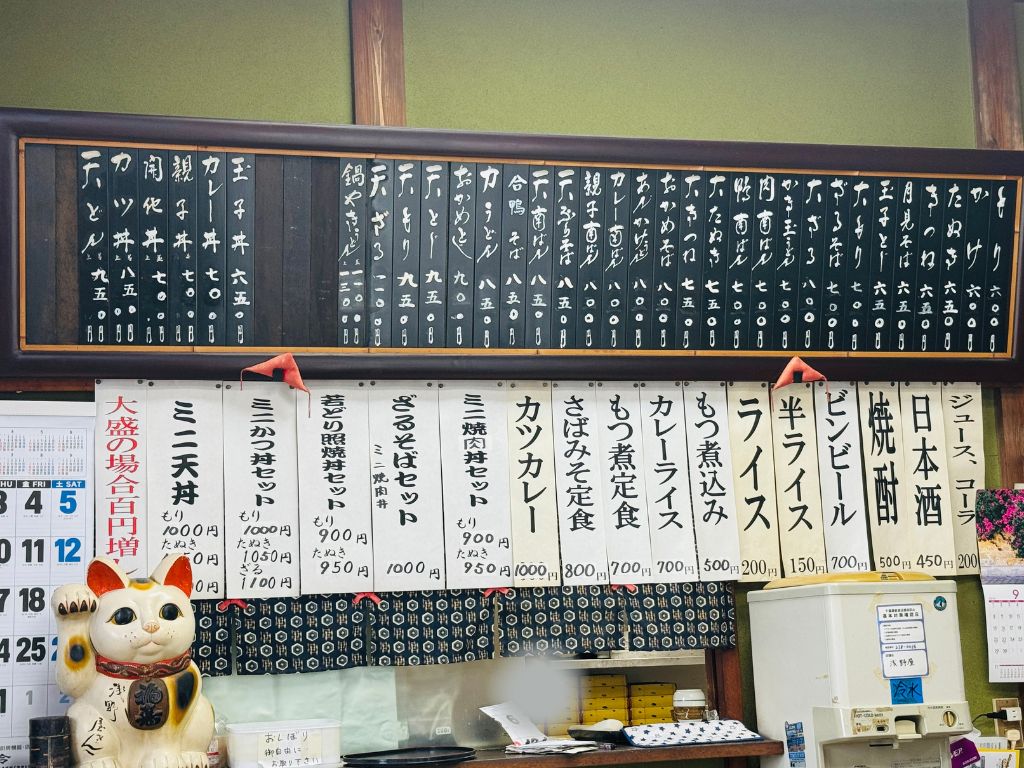 もり 六〇〇
かけ 六〇〇
たぬき 六五〇
きつね 六五〇
月見そば 六五〇
玉子とじ 六五〇
大もり 七五〇
ざるそば 七〇〇
大ざる
かき玉うどん
肉南ばん
鴨南ばん
大たぬき 七五〇
大きつね 七五〇
おかめ 八〇〇
あんかけうどん 八〇〇
カレー南ばん 八〇〇
親子南ばん 八〇〇
天ぷらそば 八五〇
天南ばん 八五〇
合鴨そば 八五〇
カうどん 八五〇
おかめとじ 九〇〇
天とじ 九五〇
天もり 九五〇
天ざる
鍋やきうどん
玉子丼 六五〇
カレー丼 七〇〇
親子丼 七〇〇
開化丼 七〇〇
カツ丼 八五〇
天どん 九五〇
ジュース、コーラ 200
日本酒 450円
焼酎 500円
ビンビール 700円
半ライス 150円
ライス 200円
もつ煮込み 500円
カレーライス 700円
もつ煮定食 700円
さばみそ定食 800円
カツカレー 1000円
ミニ焼肉丼セット
もり 900円
たぬき 950円
ざるそばセット
ミニ焼肉丼
1000円
若どり照焼丼セット
もり 900円
たぬき 950円
ミニかつ丼セット
もり 1000円
たぬき 1050円
ざる 1100円
ミニ天丼
もり 1000円
たぬき
大盛の場合百円増
THU FRI 土 SAT
3 4 5
11 12
18
25
1
9
浅野屋さん
おしぼり
御自由に
お取り下さい
浅野屋
冷水